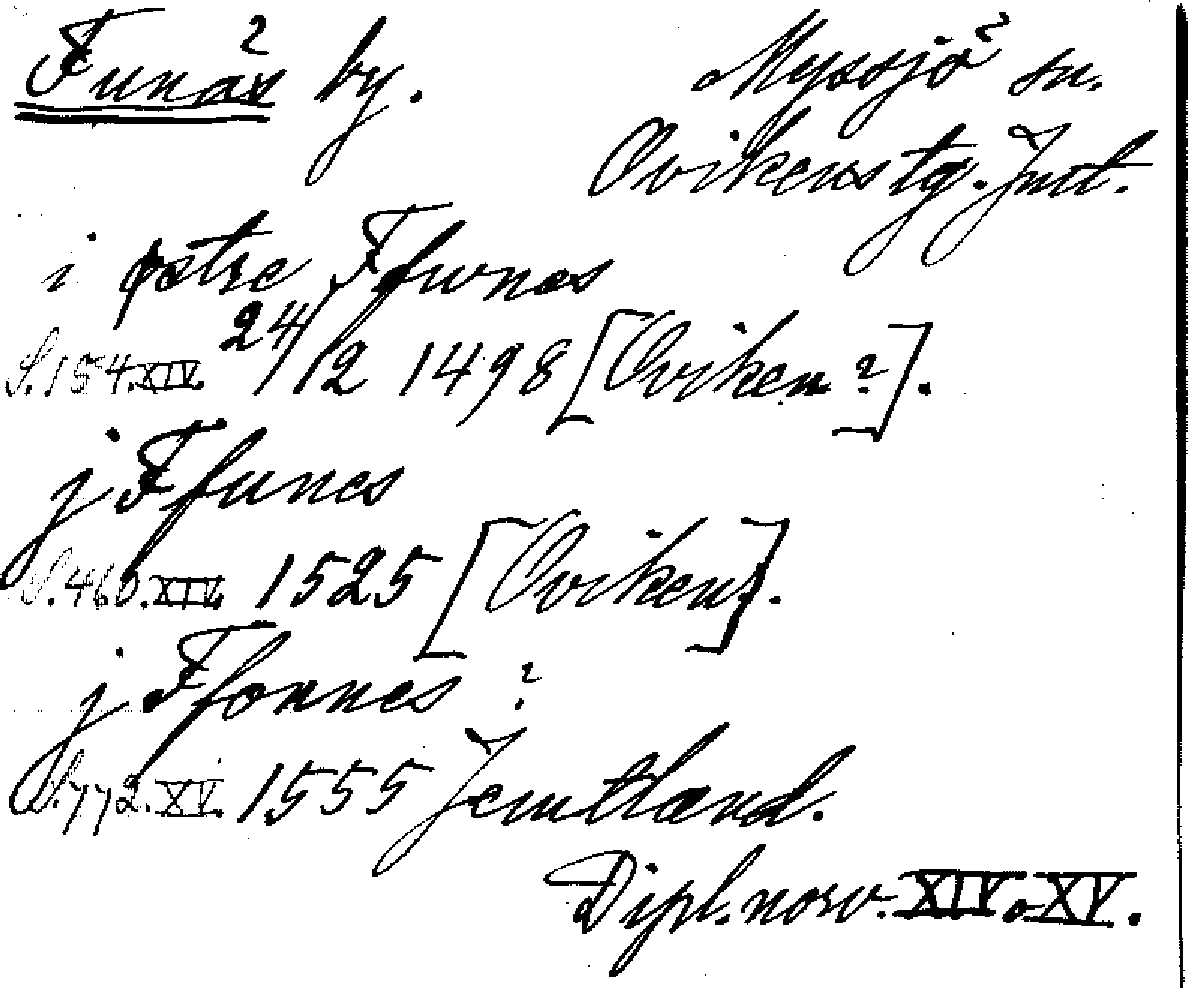 Funäs by. Myssjö sn.
Ovikens tg. Jmt.
i østre Ffunes
S. 154. XIV. 24/2 1498 [Oviken?].
j Ffunes
S. 460. XIV. 1525 [Oviken].
j Ffonnes ?
S. 772. XV. 1555 Jemtland.
Dipl. norv. XIV o XV.